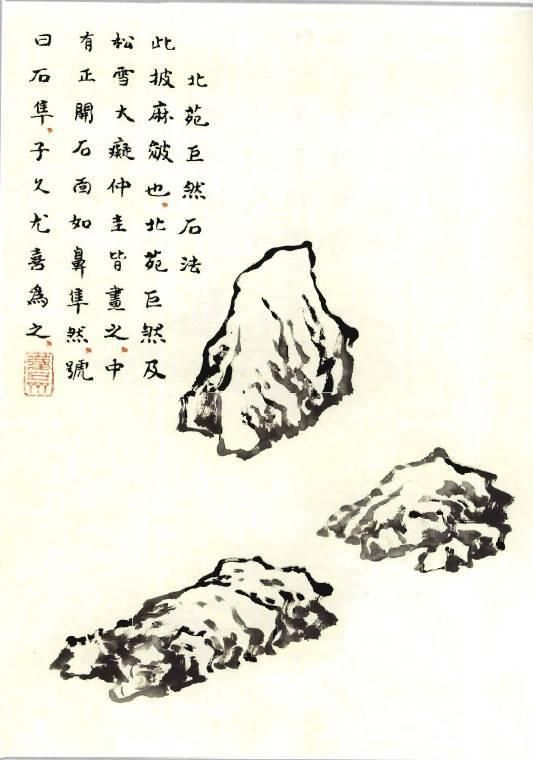 北苑巨然石法
此披麻皴也北苑巨然及
松雪大癡仲圭皆畫之中
有正開石面如鼻準然號
曰石隼子久尤喜為之